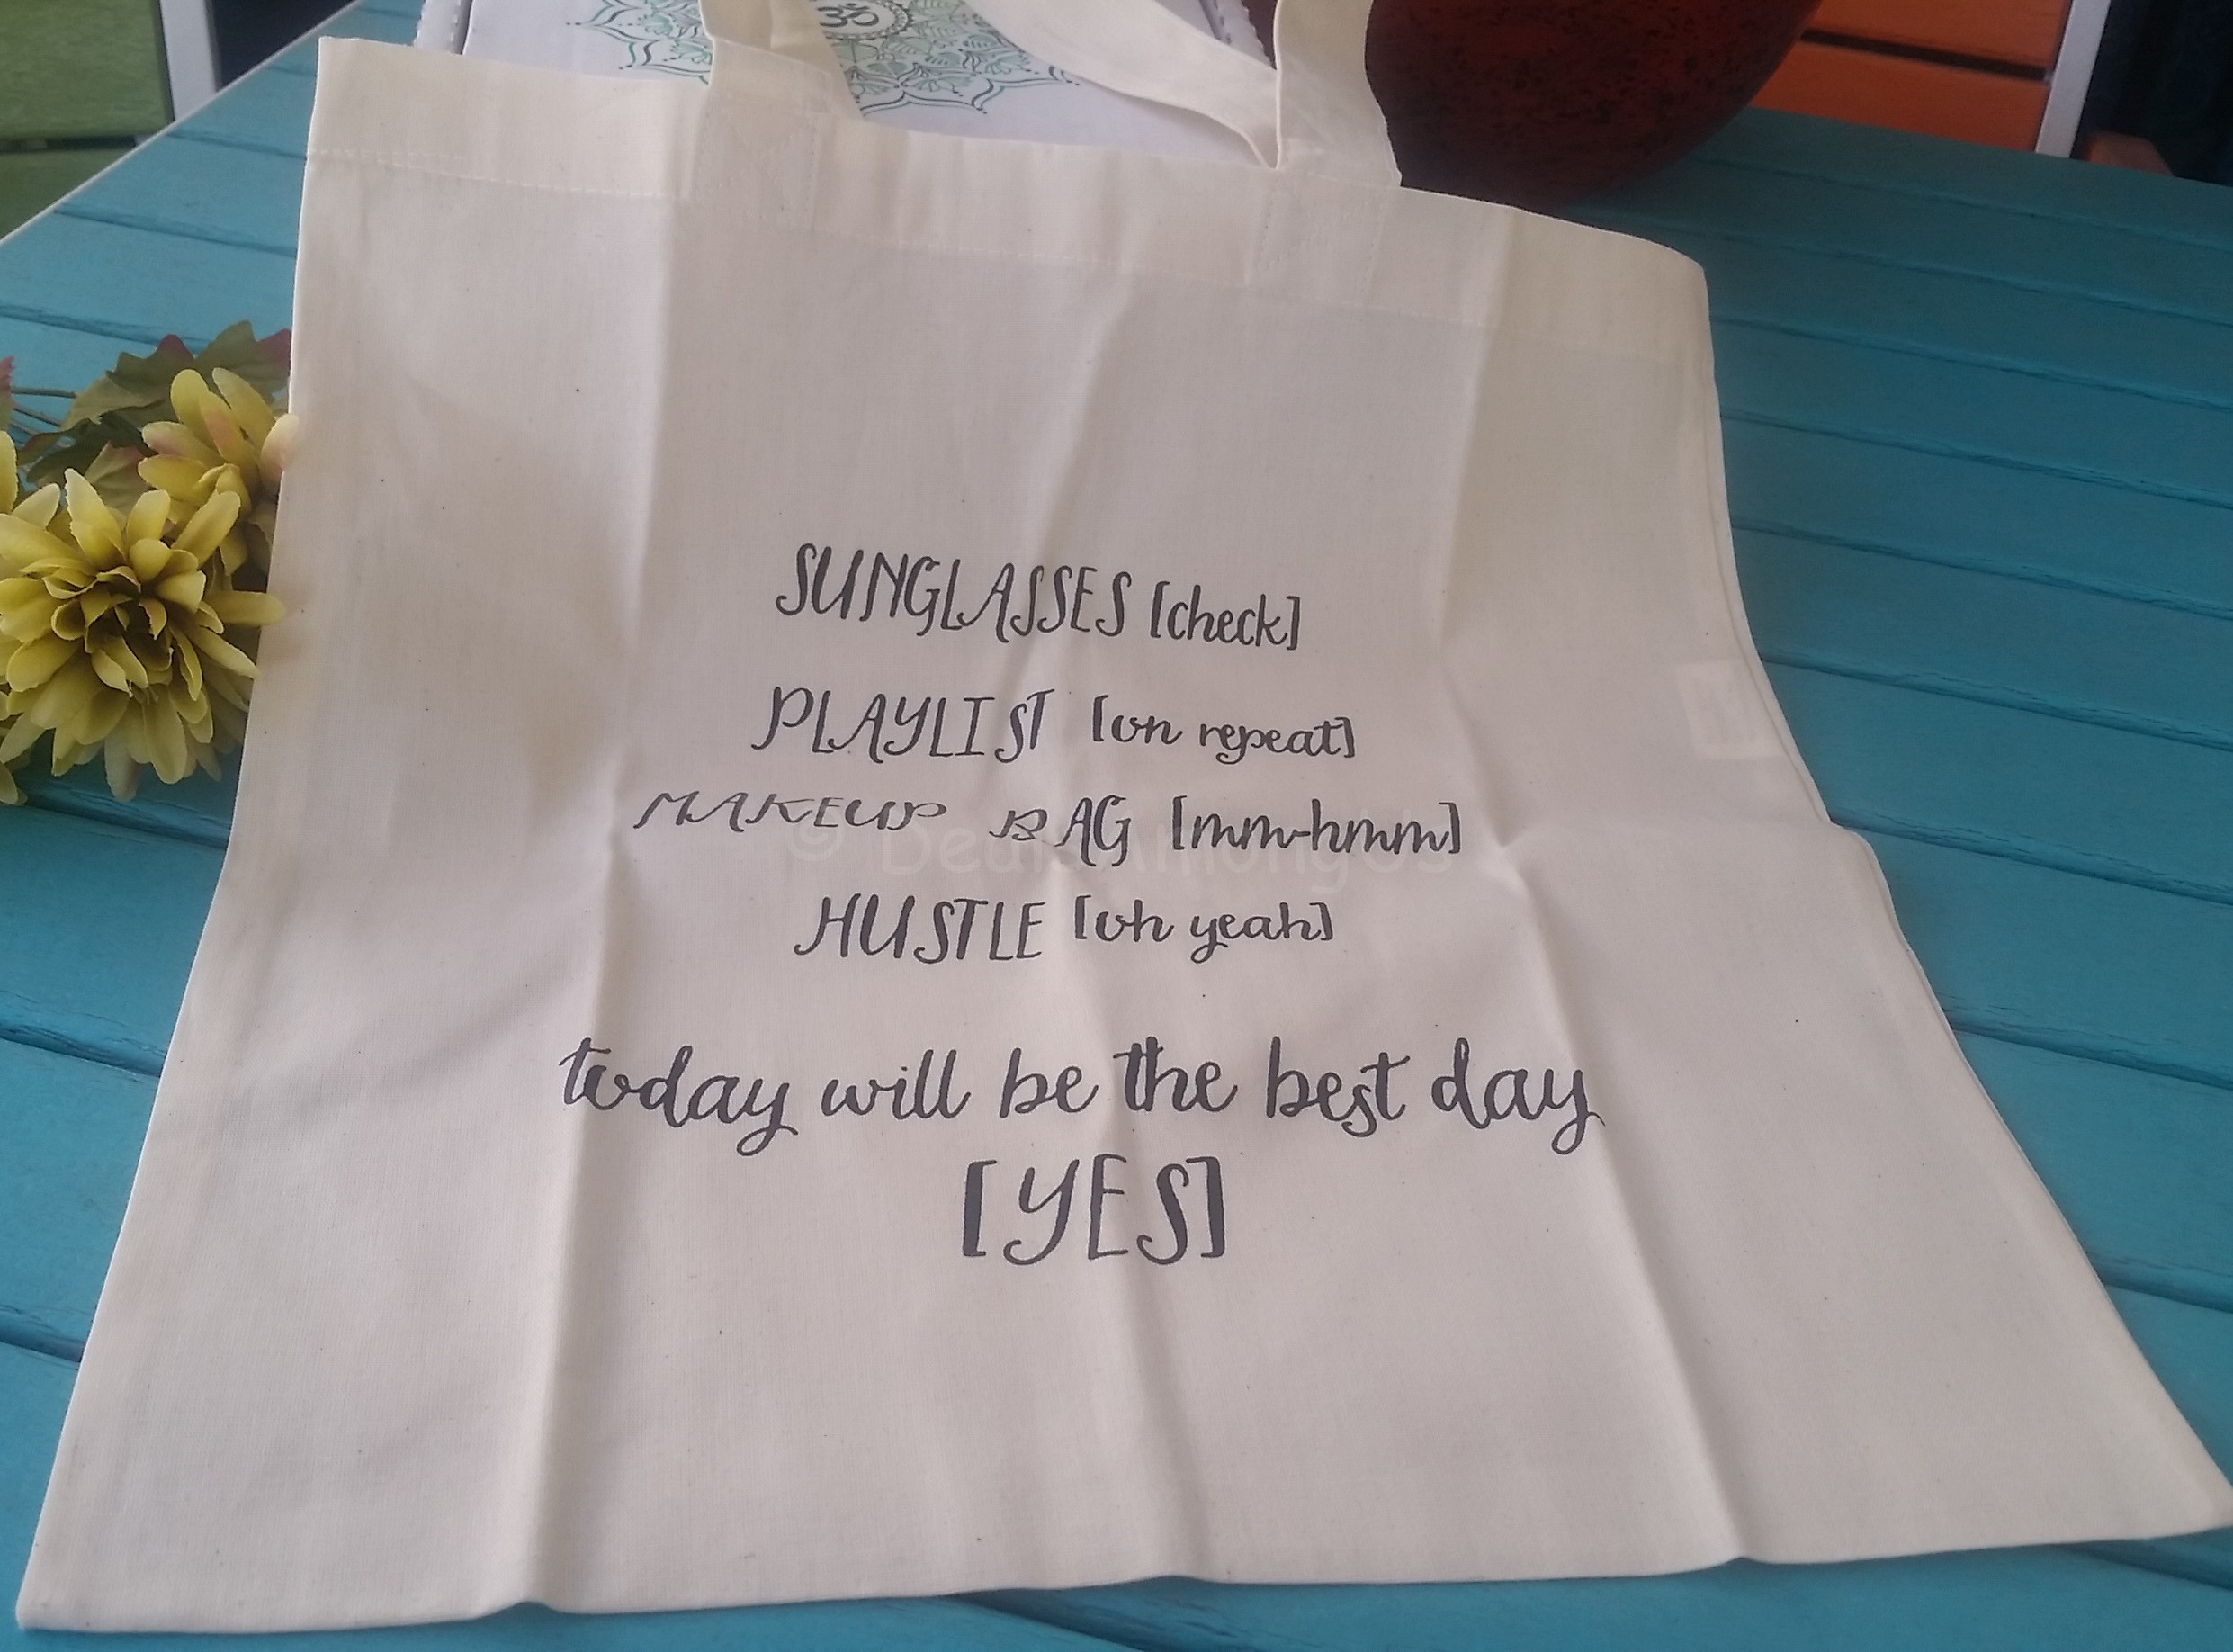 ॐ
SUNGLASSES [check]
PLAYLIST [on repeat]
MAKEUP BAG [mm-hmm]
© DealsAmongUs
HUSTLE [oh yeah]
today will be the best day
[YES]